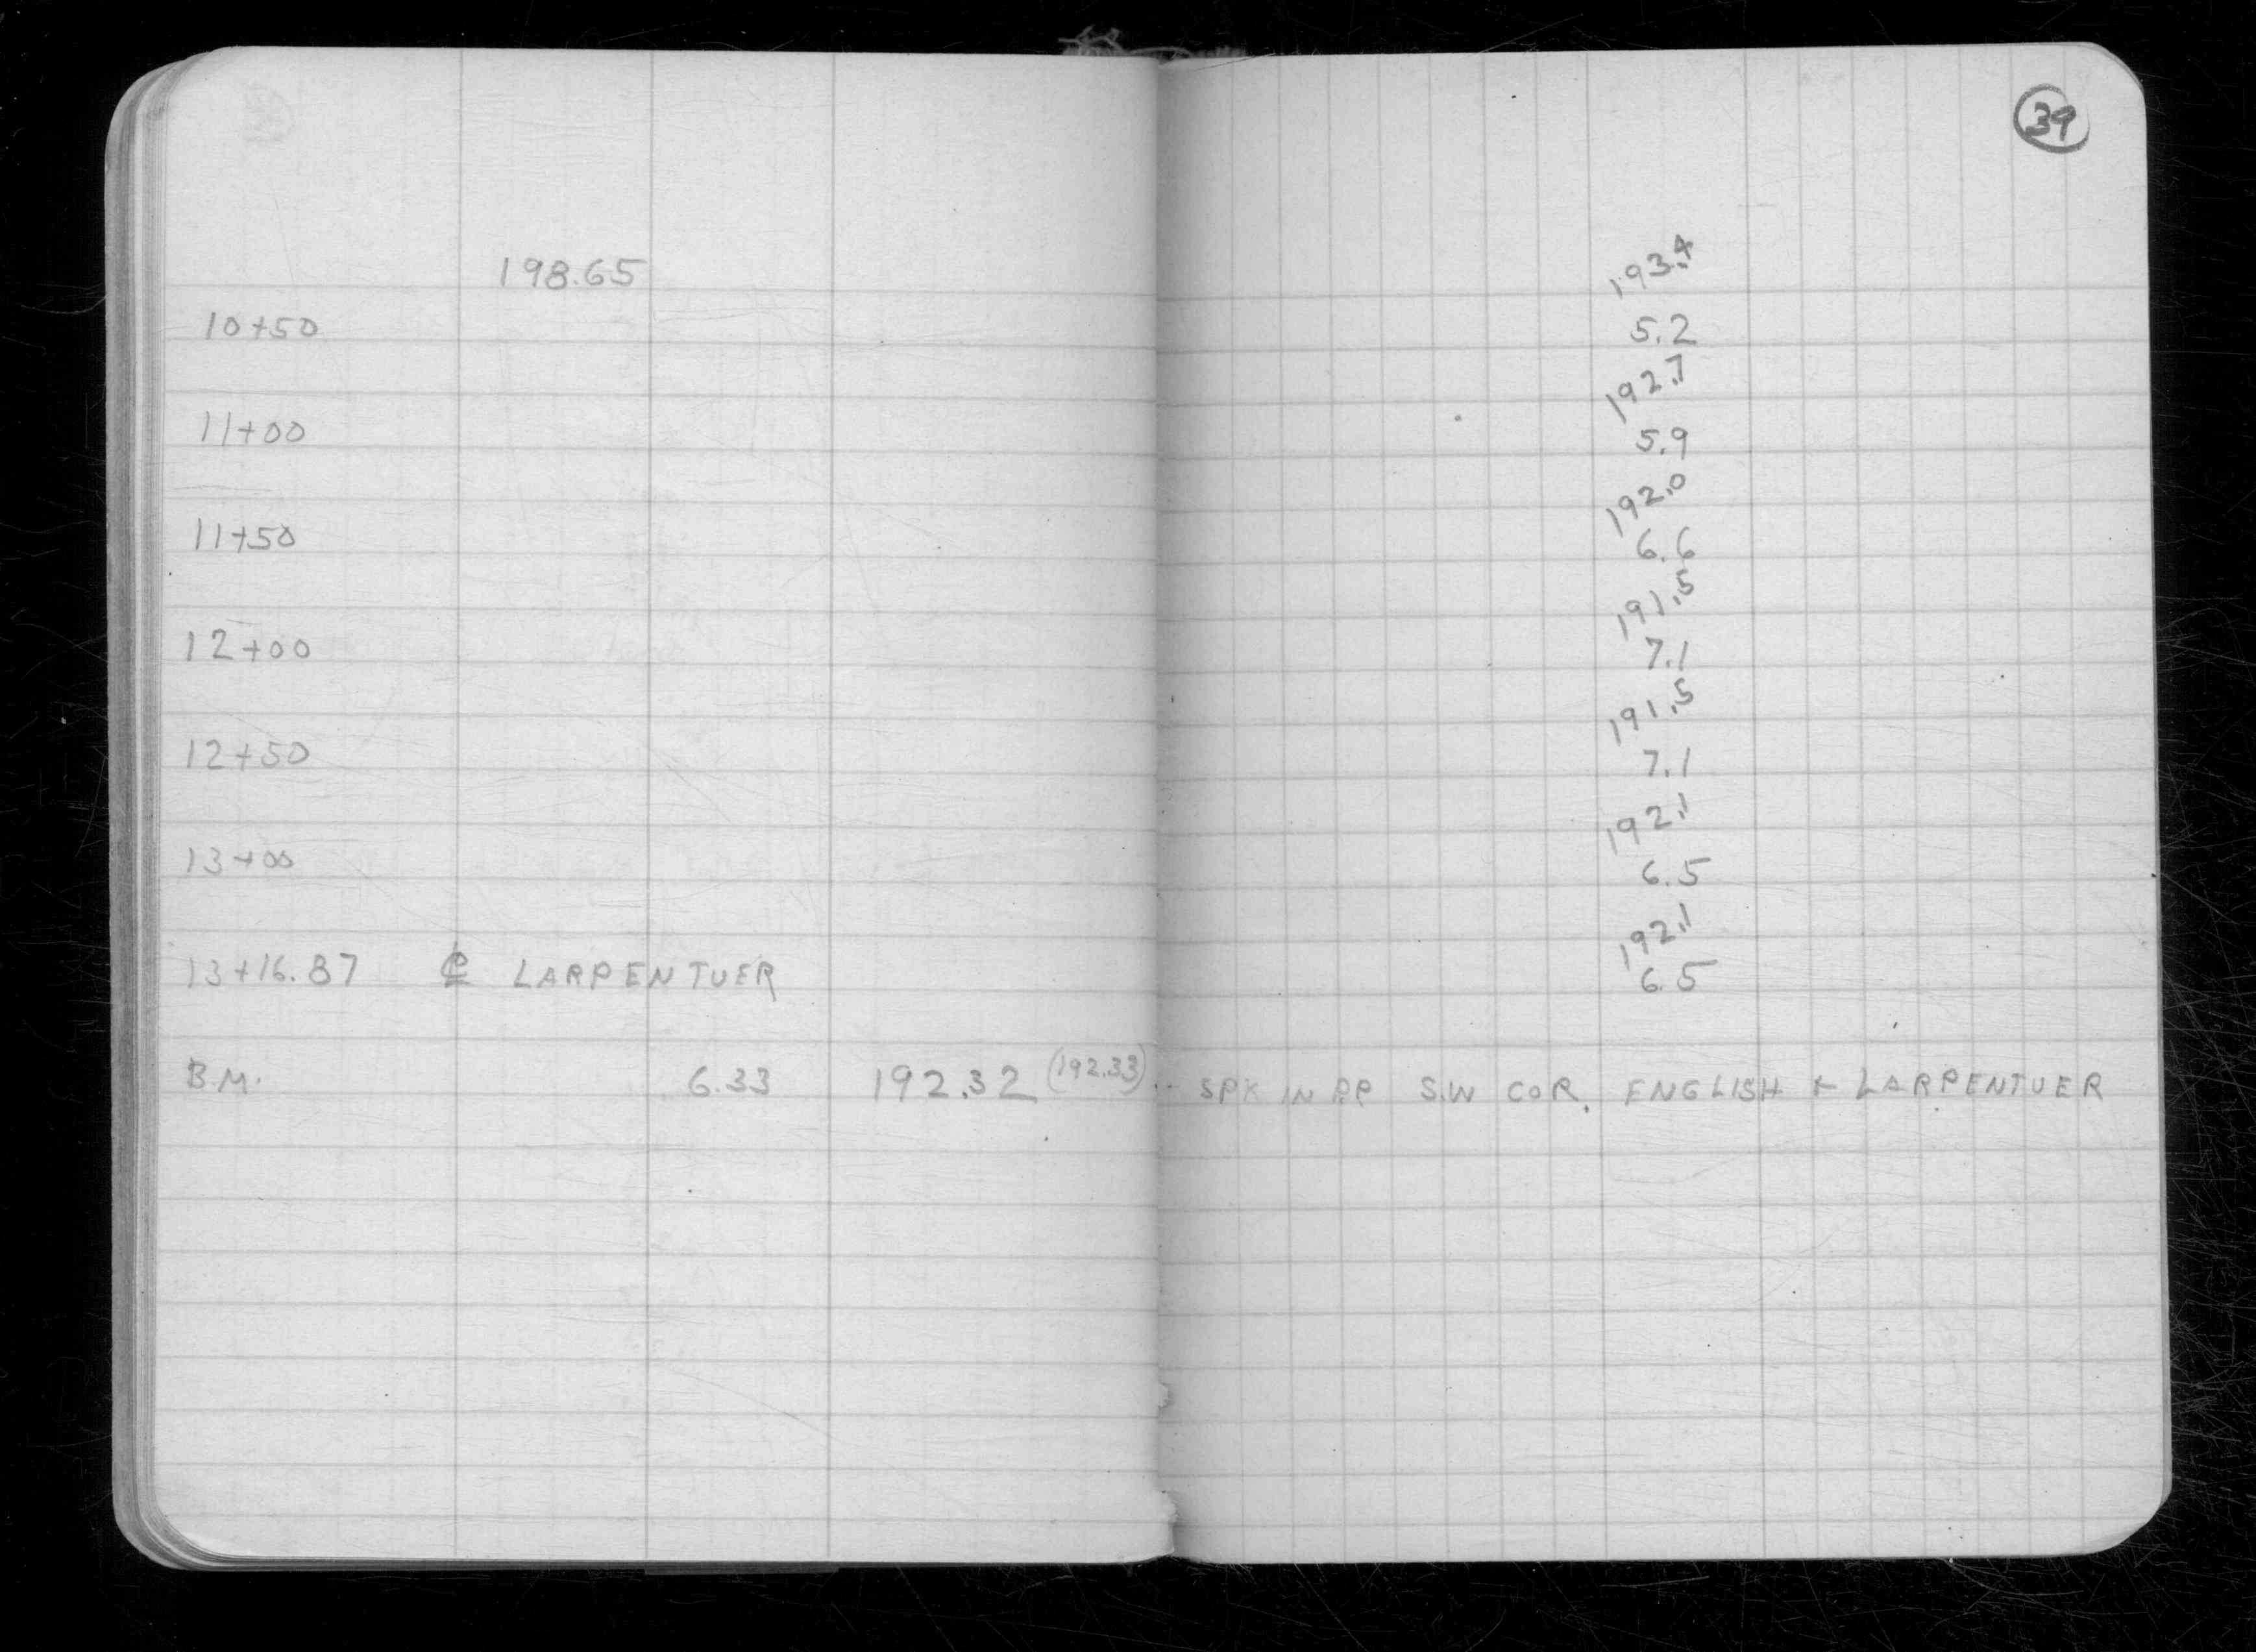 39
198.65 193.4
10+50 5.2
192.7
11+00 5.9
192.0
11+50 6.6
191.5
12+00 7.1
191.5
12+50 7.1
192.1
13+00 6.5
192.1
13+16.87 ℄ LARPENTUER 6.5
B.M. 6.33 192.32 (192.33) SPK IN PP S.W COR. ENGLISH + LARPENTUER